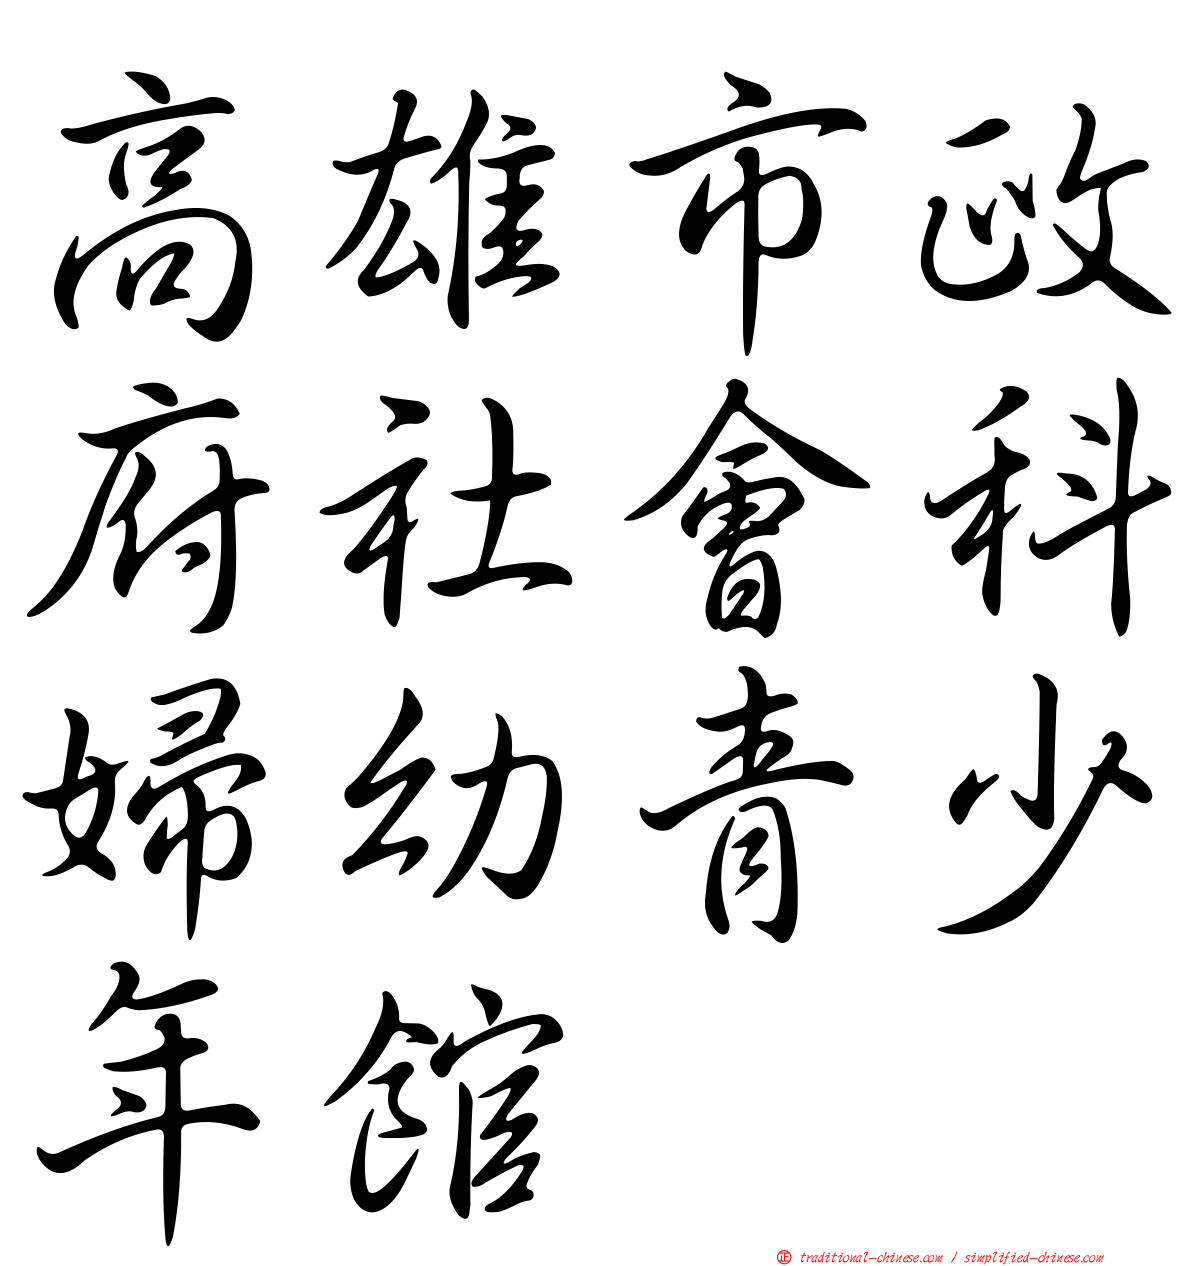 高雄市政
府社會科
婦幼青少
年館
㊣ traditional-chinese.com / simplified-chinese.com